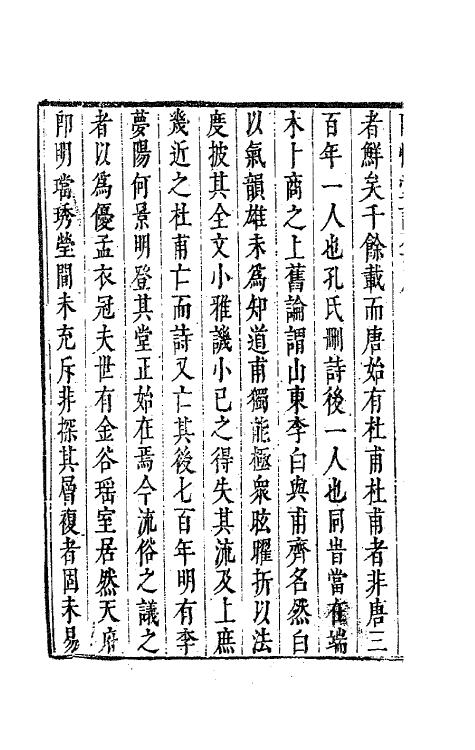 者鮮矣千餘載而唐始有杜甫杜甫者非唐三
百年一人也孔氏刪詩後一人也同昔當在端
木卜商之上舊論謂山東李白與甫齊名然白
以氣韻雄未為知道甫獨能極衆眩矅折以法
度披其全文小雅譏小己之得失其流及上庶
幾近之杜甫亡而詩又亡其後七百年明有李
夢陽何景明登其堂正始在焉今流俗之議之
者以為優孟衣冠夫世有金谷瑶室居然天府
郎明璫琇瑩間未充斥非探其層複者固未易